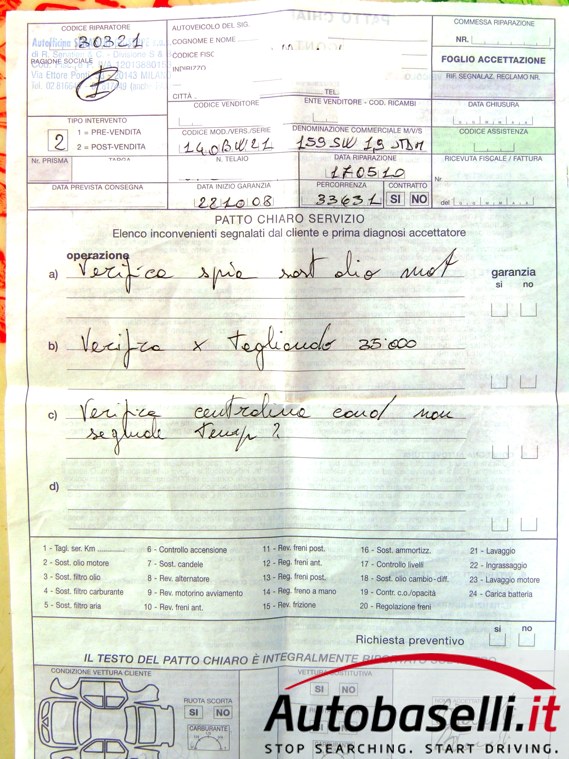 CODICE RIPARATORE
30321
RAGIONE SOCIALE
TIPO INTERVENTO
2
1 = PRE-VENDITA
2 = POST-VENDITA
Nr. PRISMA
TARGA
DATA PREVISTA CONSEGNA
AUTOVEICOLO DEL SIG.
COGNOME E NOME
CODICE FISC
INDIRIZZO
CITTÀ TEL.
CODICE VENDITORE
ENTE VENDITORE - COD. RICAMBI
CODICE MOD./VERS./SERIE
DENOMINAZIONE COMMERCIALE M/V/S
159 SW 1,9 JTDM
N. TELAIO
DATA RIPARAZIONE
170510
DATA INIZIO GARANZIA
221008
PERCORRENZA
33631
CONTRATTO
SI NO
COMMESSA RIPARAZIONE
NR.
FOGLIO ACCETTAZIONE
RIF. SEGNALAZ. RECLAMO NR.
DATA CHIUSURA
CODICE ASSISTENZA
RICEVUTA FISCALE / FATTURA
Nr
del
PATTO CHIARO SERVIZIO
Elenco inconvenienti segnalati dal cliente e prima diagnosi accettatore
operazione
garanzia
si no
a) Verifica spia sost olio mot
b) Verifica x tagliando 35.000
c) Verifica centralina cond non
segnale temp ?
d)
1 - Tagl. ser. Km
2 - Sost. olio motore
3 - Sost. filtro olio
4 - Sost. filtro carburante
5 - Sost. filtro aria
6 - Controllo accensione
7 - Sost. candele
8 - Rev. alternatore
9 - Rev. motorino avviamento
10 - Rev. freni ant.
11 - Rev. freni post.
12 - Reg. freni ant.
13 - Reg. freni post.
14 - Reg. freno a mano
15 - Rev. frizione
16 - Sost. ammortizz.
17 - Controllo livelli
18 - Sost. olio cambio-diff.
19 - Contr. c.o./opacità
20 - Regolazione freni
21 - Lavaggio
22 - Ingrassaggio
23 - Lavaggio motore
24 - Carica batteria
si no
Richiesta preventivo
IL TESTO DEL PATTO CHIARO È INTEGRALMENTE
CONDIZIONE VETTURA CLIENTE
RUOTA SCORTA
SI NO
CARBURANTE
SI NO
Autobaselli.it
STOP SEARCHING. START DRIVING.